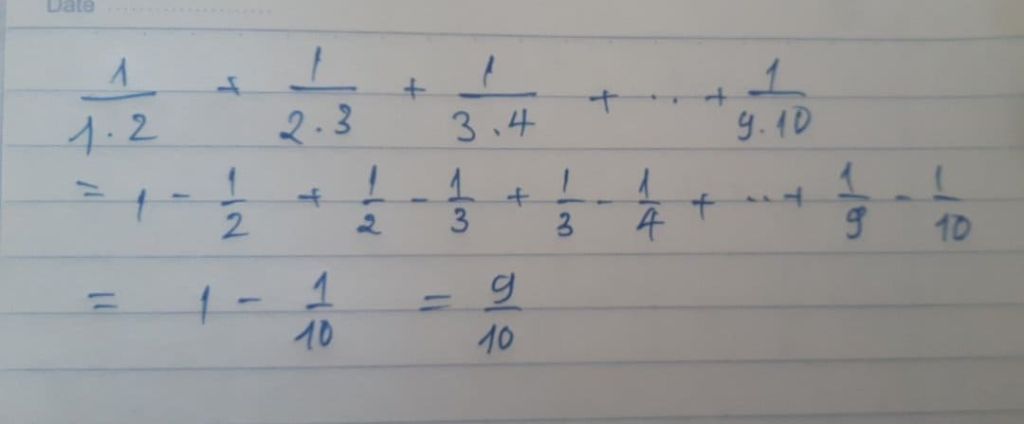 Date
1/1.2 + 1/2.3 + 1/3.4 + ... + 1/9.10
= 1 - 1/2 + 1/2 - 1/3 + 1/3 - 1/4 + ... + 1/9 - 1/10
= 1 - 1/10 = 9/10